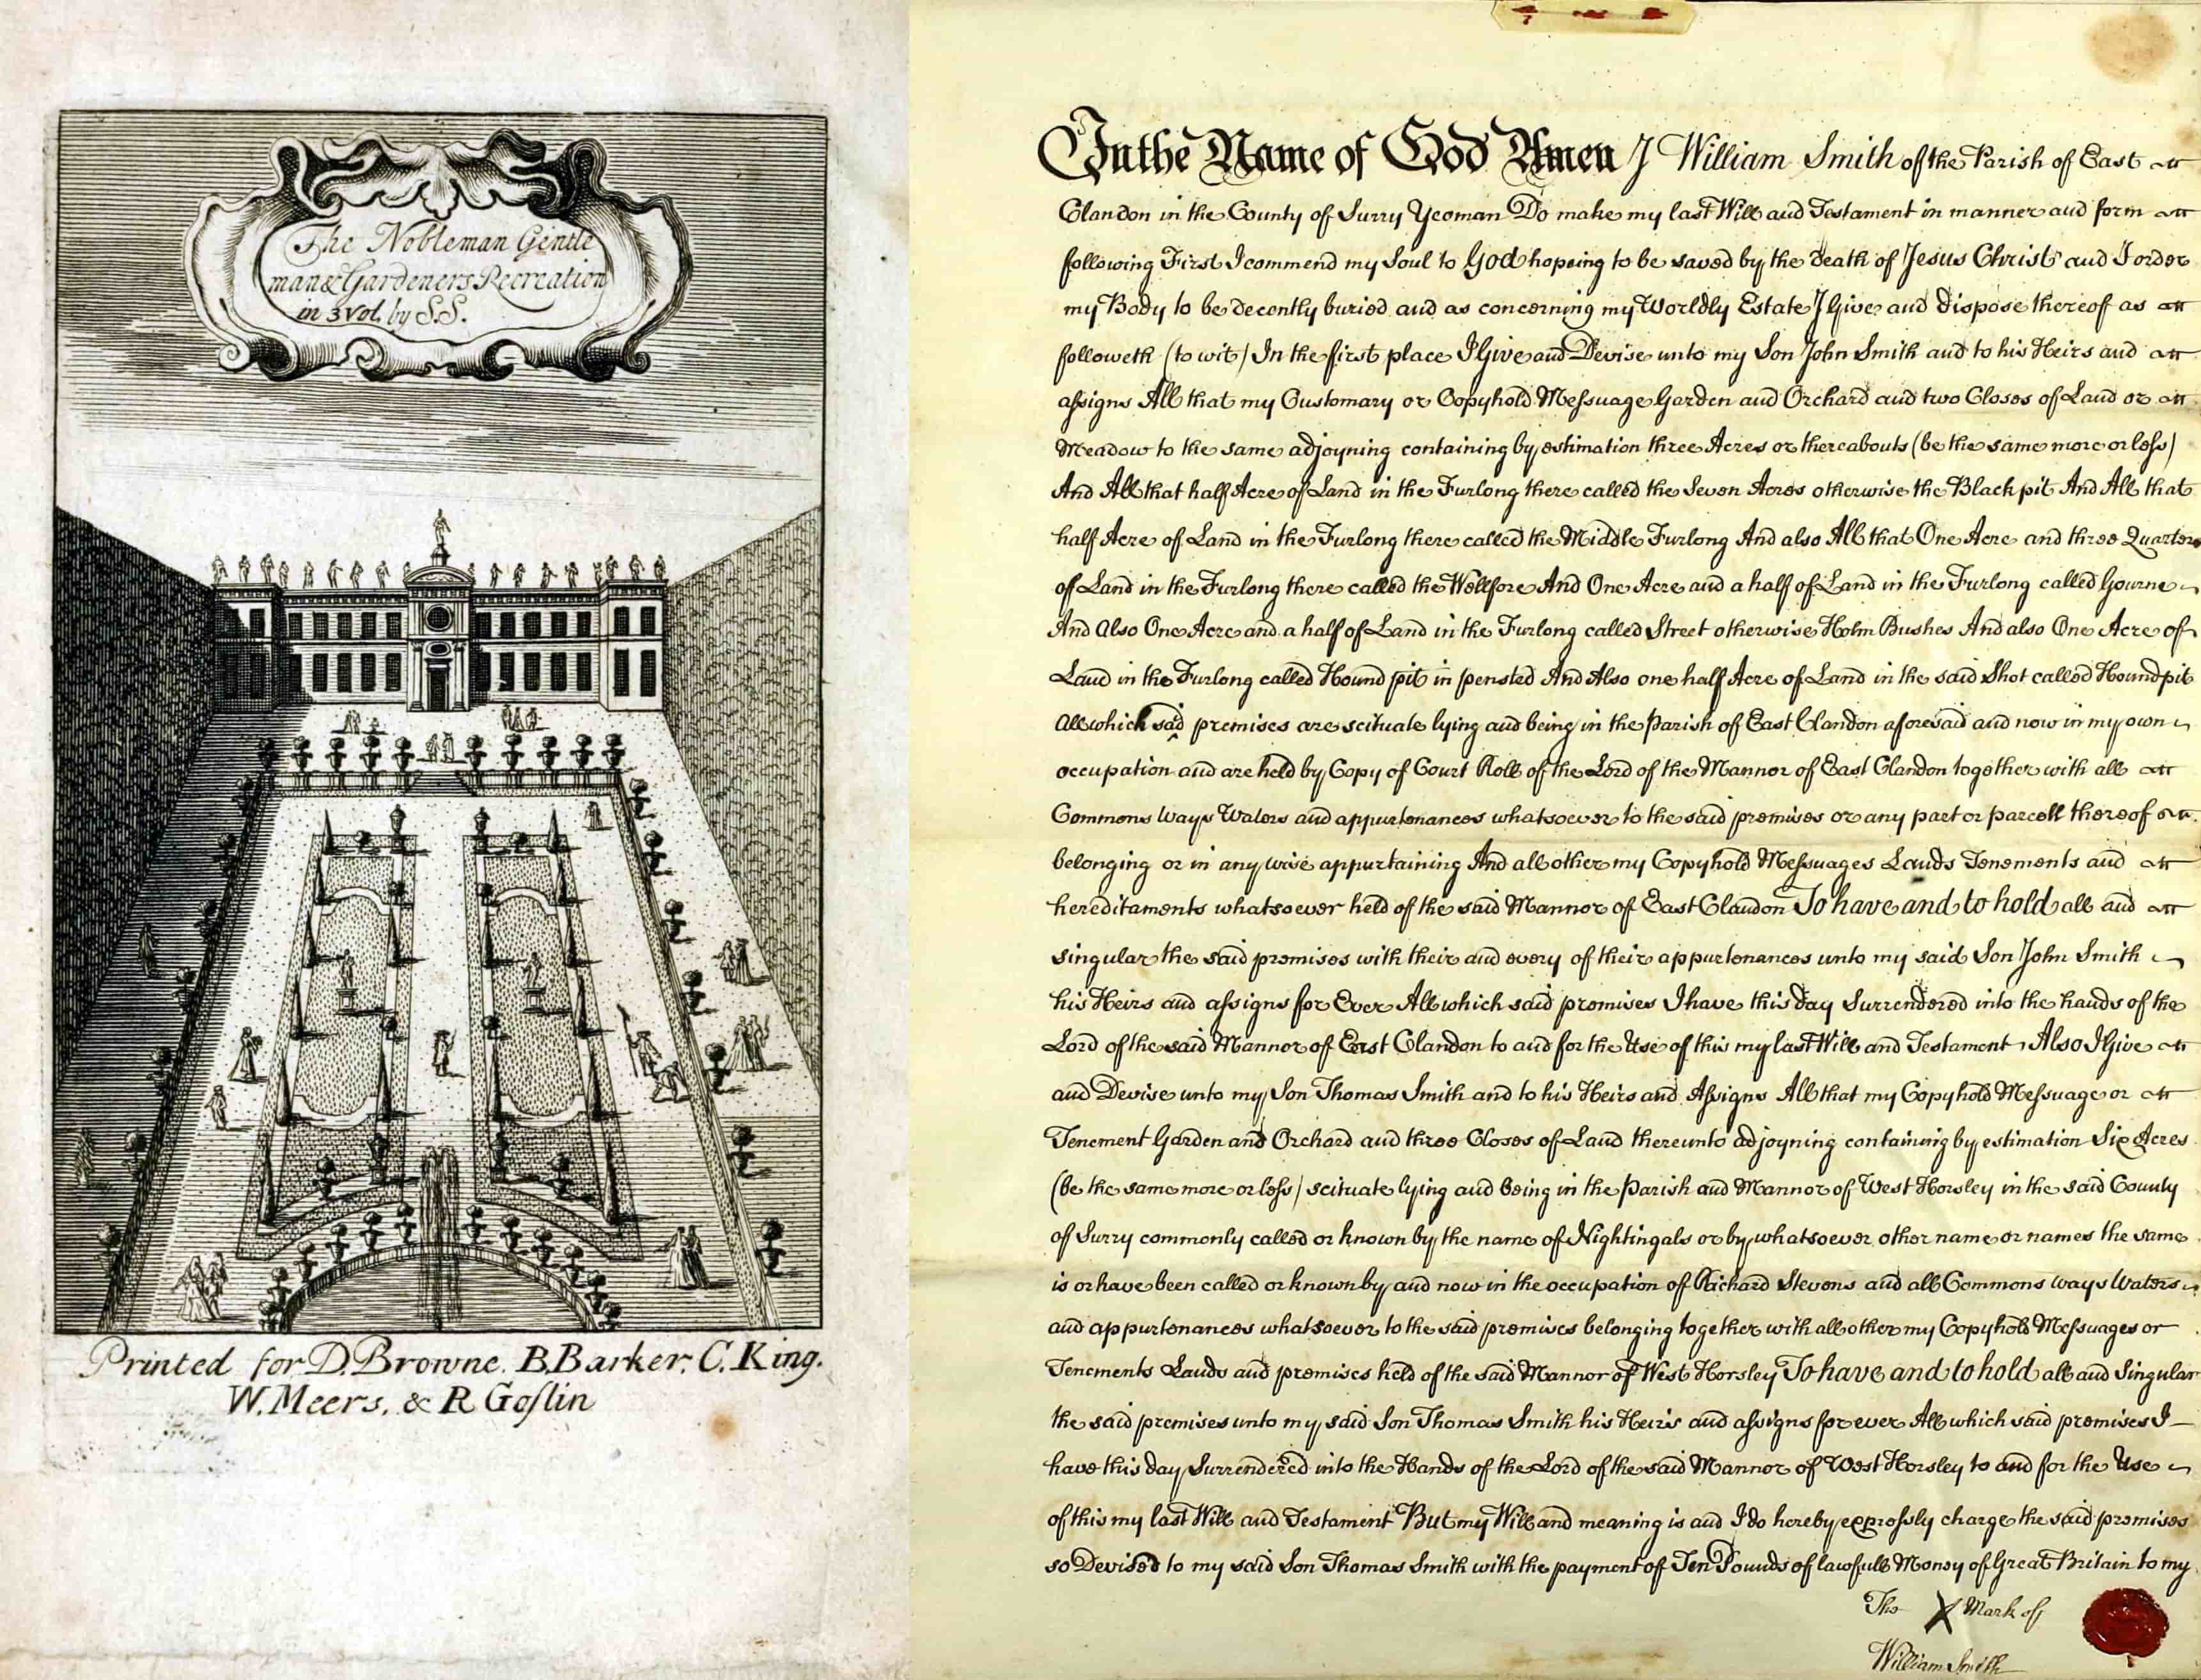 The Nobleman Gentle
man & Gardeners Recreation
in 3 Vol. by S.S.
Printed for D. Browne. B. Barker. C. King.
W. Meers, & R Goslin
In the Name of God Amen I William Smith of the Parish of East
Clandon in the County of Surry Yeoman Do make my last Will and Testament in manner and form
following First I commend my Soul to God hopeing to be saved by the Death of Jesus Christ and I order
my Body to be decently buried and as concerning my Worldly Estate I Give and dispose thereof as
followeth (to wit) In the first place I Give and Devise unto my Son John Smith and to his Heirs and
assigns All that my Customary or Copyhold Messuage Garden and Orchard and two Closes of Land or
Meadow to the same adjoyning containing by estimation three Acres or thereabouts (be the same more or less)
And All that half Acre of Land in the Furlong there called the Seven Acres otherwise the Black pit And All that
half Acre of Land in the Furlong there called the Middle Furlong And also All that One Acre and three Quarters
of Land in the Furlong there called the Wellfore And One Acre and a half of Land in the Furlong called Gourne
And Also One Acre and a half of Land in the Furlong called Street otherwise Holm Bushes And also One Acre of
Land in the Furlong called Hound pit in pensted And Also one half Acre of Land in the said Shot called Houndpit
All which said premises are scituate lying and being in the Parish of East Clandon aforesaid and now in my own
occupation and are held by Copy of Court Roll of the Lord of the Mannor of East Clandon together with all
Commons Ways Waters and appurtenances whatsoever to the said premises or any part or parcell thereof
belonging or in any wise appurtaining And all other my Copyhold Messuages Lands Tenements and
hereditaments whatsoever held of the said Mannor of East Clandon To have and to hold all and
singular the said premises with their and every of their appurtenances unto my said Son John Smith
his Heirs and assigns for Ever All which said premises I have this day Surrendered into the hands of the
Lord of the said Mannor of East Clandon to and for the Use of this my last Will and Testament Also I Give
and Devise unto my Son Thomas Smith and to his Heirs and Assigns All that my Copyhold Messuage or
Tenement Garden and Orchard and three Closes of Land thereunto adjoyning containing by estimation Six Acres
(be the same more or less) scituate lying and being in the Parish and Mannor of West Horsley in the said County
of Surry commonly called or known by the name of Nightingals or by whatsoever other name or names the same
is or have been called or known by and now in the occupation of Richard Stevens and all Commons ways Waters
and appurtenances whatsoever to the said premises belonging together with all other my Copyhold Messuages or
Tenements Lands and premises held of the said Mannor of West Horsley To have and to hold all and Singular
the said premises unto my said Son Thomas Smith his Heirs and assigns for ever All which said premises I
have this day Surrendered into the Hands of the Lord of the said Mannor of West Horsley to and for the Use
of this my last Will and Testament But my Will and meaning is and I do hereby expressly charge the said premises
so Devised to my said Son Thomas Smith with the payment of Ten Pounds of lawfull Money of Great Britain to my
The X Mark of
William Smith